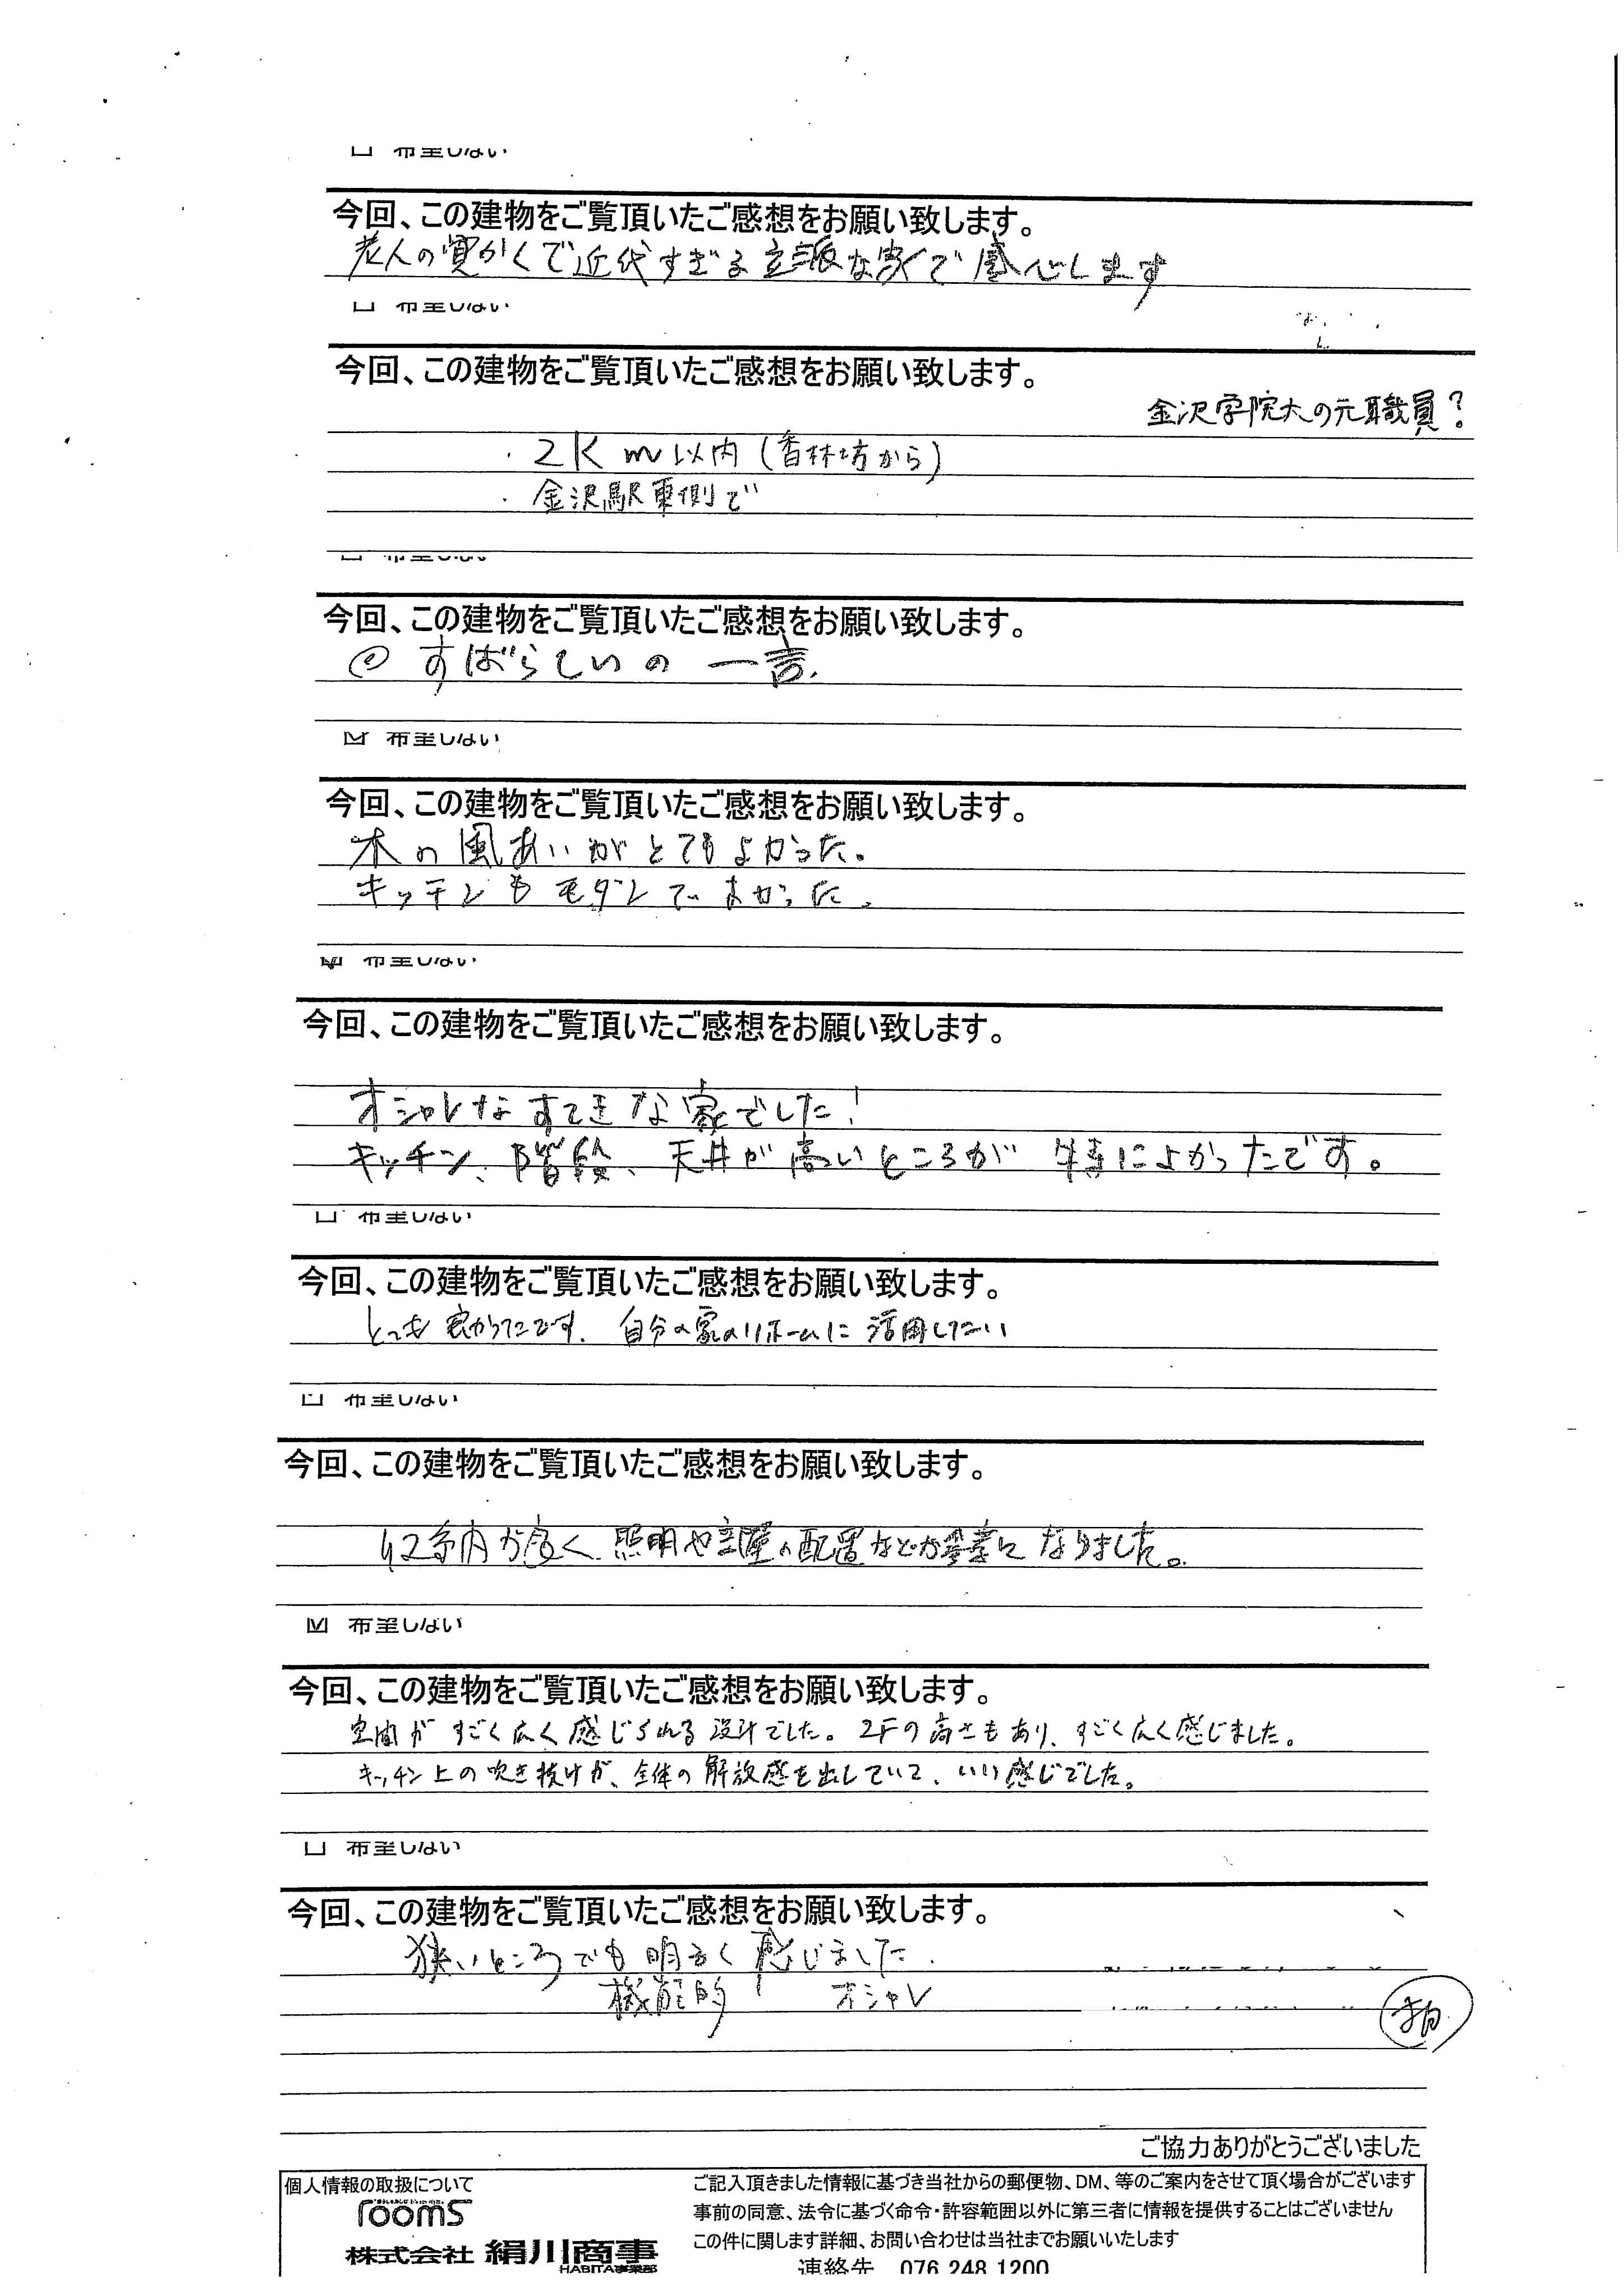 希望しない
今回、この建物をご覧頂いたご感想をお願い致します。
老人の で近代すぎる立派な家で感心します
希望しない
今回、この建物をご覧頂いたご感想をお願い致します。
金沢学院大の元職員?
・2Km以内(香林坊から)
・金沢駅東側で
希望しない
今回、この建物をご覧頂いたご感想をお願い致します。
すばらしいの一言.
希望しない
今回、この建物をご覧頂いたご感想をお願い致します。
木の風あいがとてもよかった。
キッチンもモダンでよかった。
希望しない
今回、この建物をご覧頂いたご感想をお願い致します。
オシャレなすてきな家でした!
キッチン、階段、天井が高いところが特によかったです。
希望しない
今回、この建物をご覧頂いたご感想をお願い致します。
とても良かったです. 自分の家のリホームに活用したい
希望しない
今回、この建物をご覧頂いたご感想をお願い致します。
照明や部屋の配置などが参考になりました。
希望しない
今回、この建物をご覧頂いたご感想をお願い致します。
空間がすごく広く感じられる設計でした。2Fの高さもあり、すごく広く感じました。
キッチン上の吹き抜けが、全体の解放感を出していて、いい感じでした。
希望しない
今回、この建物をご覧頂いたご感想をお願い致します。
狭いところでも明るく感じました.
機能的! オシャレ
ご協力ありがとうございました
個人情報の取扱について
rooms
株式会社 絹川商事
HABITA事業部
ご記入頂きました情報に基づき当社からの郵便物、DM、等のご案内をさせて頂く場合がございます
事前の同意、法令に基づく命令・許容範囲以外に第三者に情報を提供することはございません
この件に関します詳細、お問い合わせは当社までお願いいたします
連絡先 076 248 1200